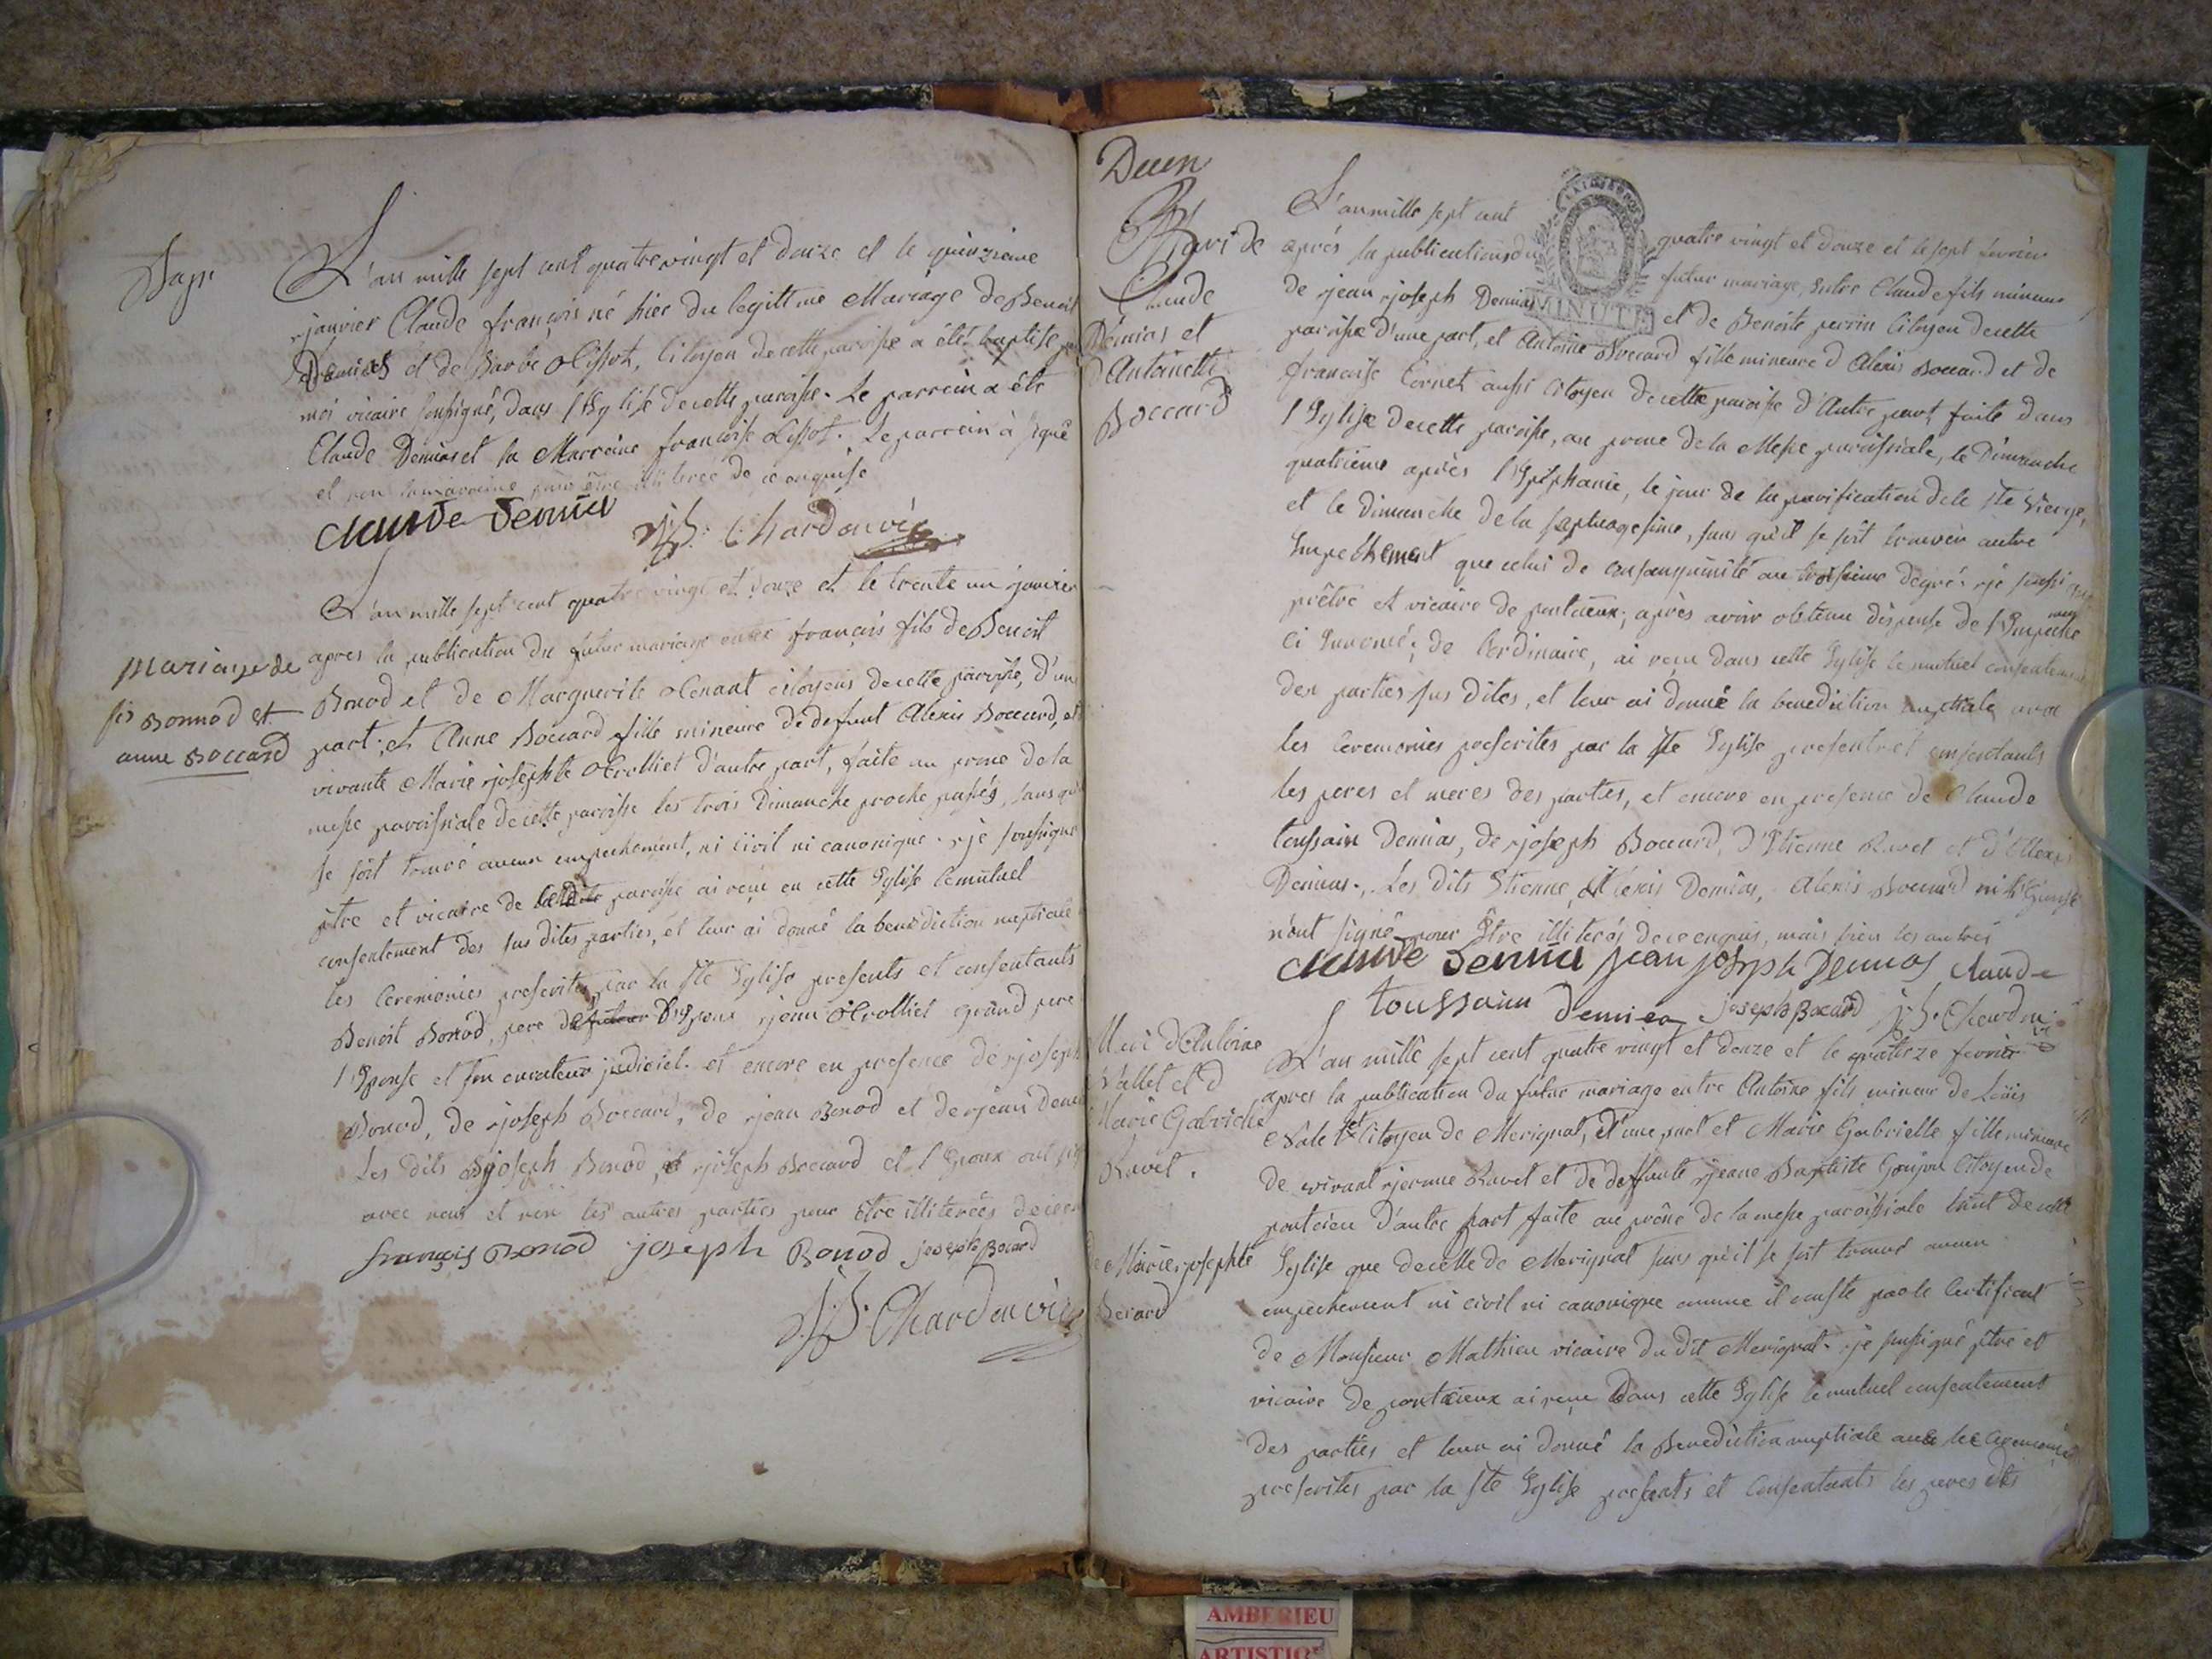 Bapt
L'an mille sept cent quatre vingt et douze et le quinzieme
janvier Claude françois né hier du legittime Mariage de Benoit
Demias et de Barbe Lissot, Citoyen de cette paroisse a étét baptise par
moi vicaire soussigné, dans l'Eglise de cette paroisse. Le parrein a été
Claude Demias et la Marreine françoise Lissot. Le parrein à signé
et non la marreine pour être illiteree de ce enquise
claude Demia J. B. Chardon vic
L'an mille sept cent quatre vingt et douze et le trente un janvier
mariage de
fis Bonnod et
anne Boccard
apres la publication du futur mariage entre françois fils de Benoit
Bonod et de Marguerite citoyens de cette paroisse, d'une
part, et Anne Boccard fille mineure de defunt Alexis Boccard, et
vivante Marie josephte Crolliet d'autre part, faite au prone de la
messe paroissiale de cette paroisse les trois Dimanche proche passés, sans qu'il
se soit trouvé aucun empechement, ni civil ni canonique. je soussigné
ptre et vicaire de paroisse ai reçu en cette Eglise le mutuel
consentement des sus dites parties, et leur ai donné la benediction nuptiale
les Ceremonies prescrites par la Ste Eglise presents et consentants
Benoit Bonod, pere de l'Epoux jean Crolliet grand pere
l'Epouse et son curateur judiciel. et encore en presence de joseph
Bonod, de joseph Boccard, de jean Bonod et de jean
Les dits joseph Bonod, et joseph Boccard et l'Epoux ont
avec nous et non les autres parties pour être illiterées de ce
françois Bonod joseph Bonod joseph Bocard
J. B. Chardon vic
Duen
Mari de
Claude
Demias et
d'Antoinette
Boccard
L'an mille sept cent quatre vingt et douze et le sept fevrier
après la publications du futur mariage, entre Claude fils mineur
MINUTE
de jean joseph Demias et de Benoite perrin Citoyen de cette
paroisse d'une part, et Antoine Boccard fille mineure d'Alexis Boccard et de
françoise Cornet aussi citoyen de cette paroisse d'Autre part, faite dans
l'Eglise de cette paroisse, au prone de la Messe paroissiale, le Dimanche
quatrieme après l'Epiphanie, le jour de la purification de la Ste Vierge,
et le Dimanche de la septuagesime, sans qu'il se soit trouver autre
Empechement que celui de consanguinité au troisieme degré. je soussigné
prêtre et vicaire de pontcieux, après avoir obtenu dispense de l'Empeche
ment
ci enoncé, de l'ordinaire, ai reçu dans cette Eglise le mutuel consentement
des parties sus dites, et leur ai donné la benediction nuptiale avec
les Ceremonies prescrites par la Ste Eglise presents et consentants
les peres et meres des parties, et encore en presence de Claude
toussain Demias, de joseph Boccard, d'Etienne Ravet et d'Alexis
Demias. Les dits Etienne, Alexis Demias, Alexis Boccard ni
n'ont signé pour Etre illiterés de ce enquis, mais bien les autres
claude Demia jean joseph Demias claude
toussain Demia joseph Bocard J. B. Chardon vic
Mari d'Antoine
Vallet et d
Marie Gabrielle
Ravet.
L'an mille sept cent quatre vingt et douze et le quatorze fevrier
apres la publication du futur mariage entre Antoine fils mineur de Loüis
Citoyen de Merignat, d'une part et Marie Gabrielle fille mineure
de vivant jerome Ravet et de deffunte jeanne Baptiste Goujon Citoyen de
pontcieu d'autre part faite au prône de la messe paroissiale tant de cette
de Marie josephte
Berard
Eglise que de celle de Merignat sans qu'il se soit trouvé aucun
empechement ni civil ni canonique comme il conste par le Certificat
de Monsieur Mathieu vicaire du dit Merignat. je soussigné ptre et
vicaire de pontcieux ai reçu Dans cette Eglise le mutuel consentement
des parties et leur ai donné la Benediction nuptiale avec les Ceremonies
prescrites par la Ste Eglise presents et Consentants les peres des
AMBERIEU
ARTISTIQUE